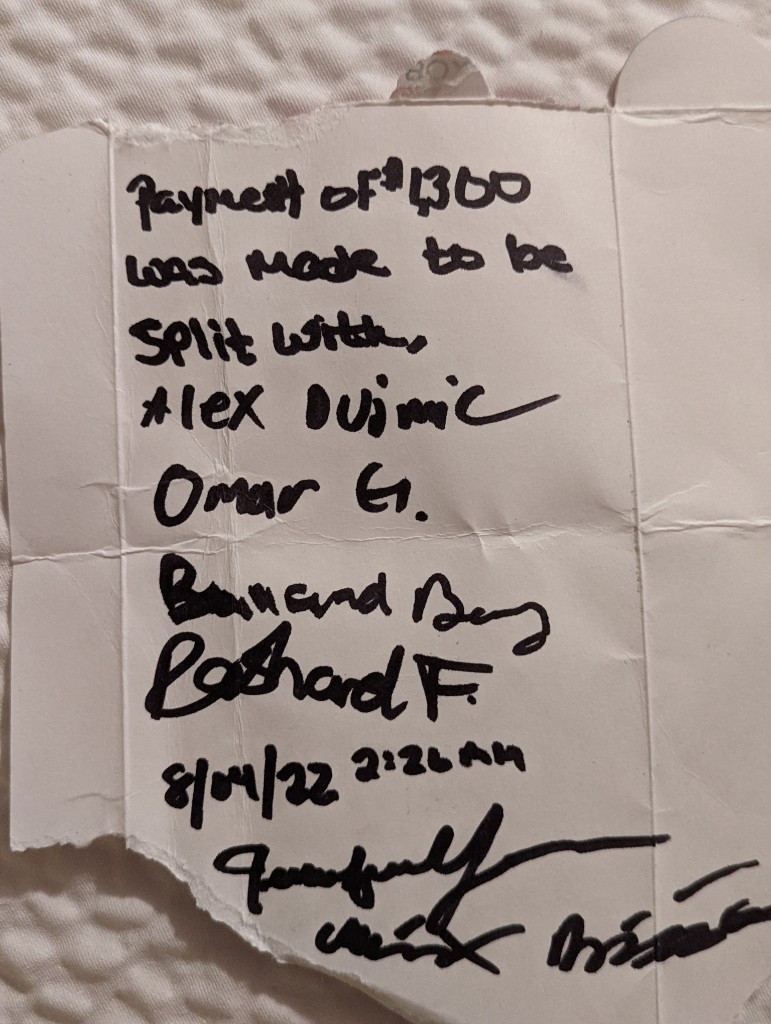 Payment of $1,300
was made to be
split with,
Alex Dujmic
Omar G.
Rashard F.
8/04/22 2:26 AM